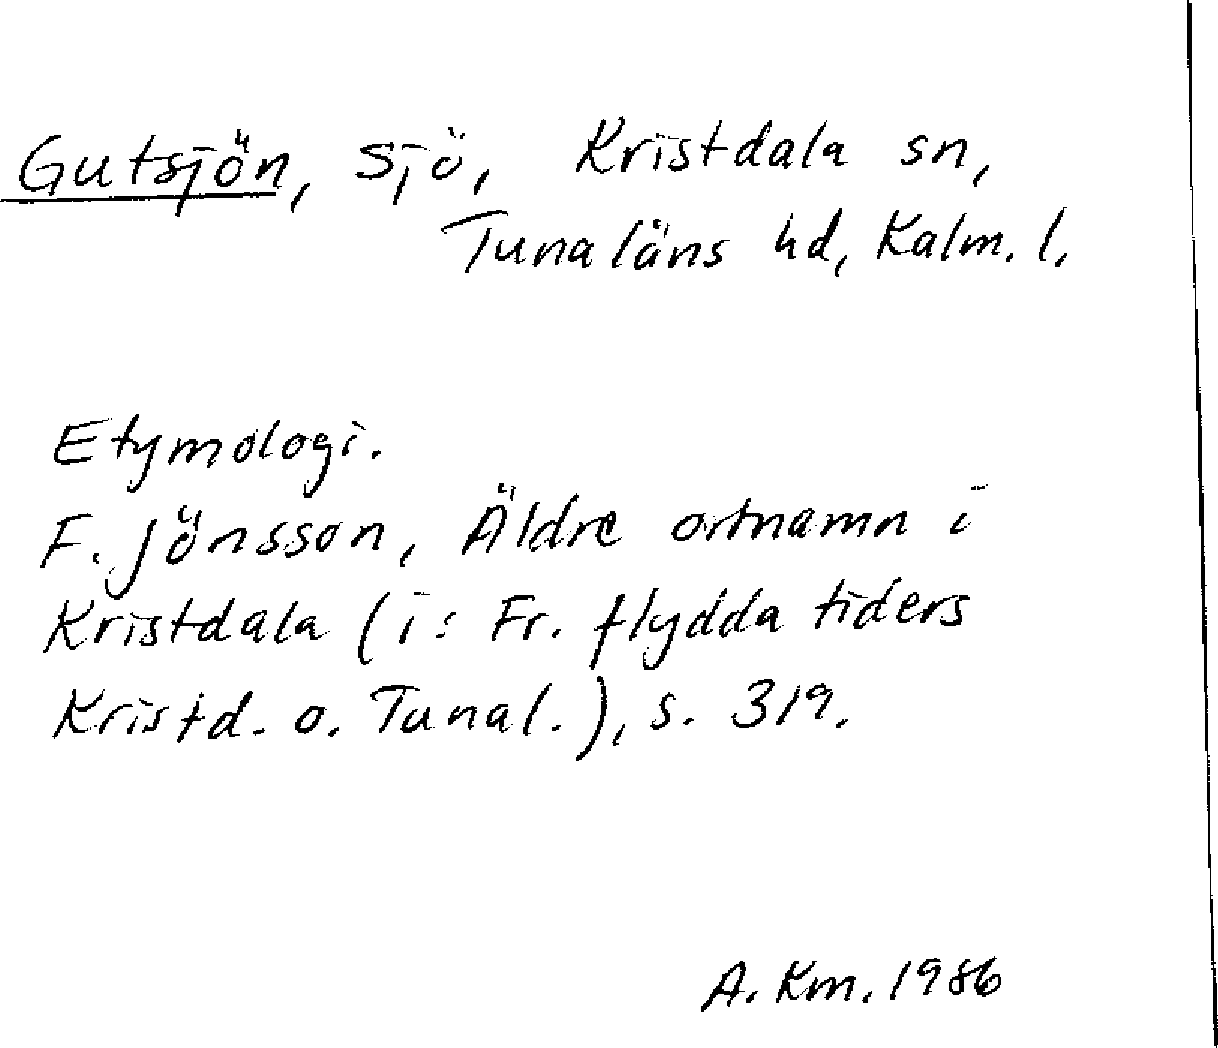 Gutsjön, sjö, Kristdala sn,
Tunaläns hd, Kalm. l.
Etymologi.
F. Jönsson, Äldre ortnamn i
Kristdala (i: Fr. flydda tiders
Kristd. o. Tunal.), s. 319.
A. Km. 1986